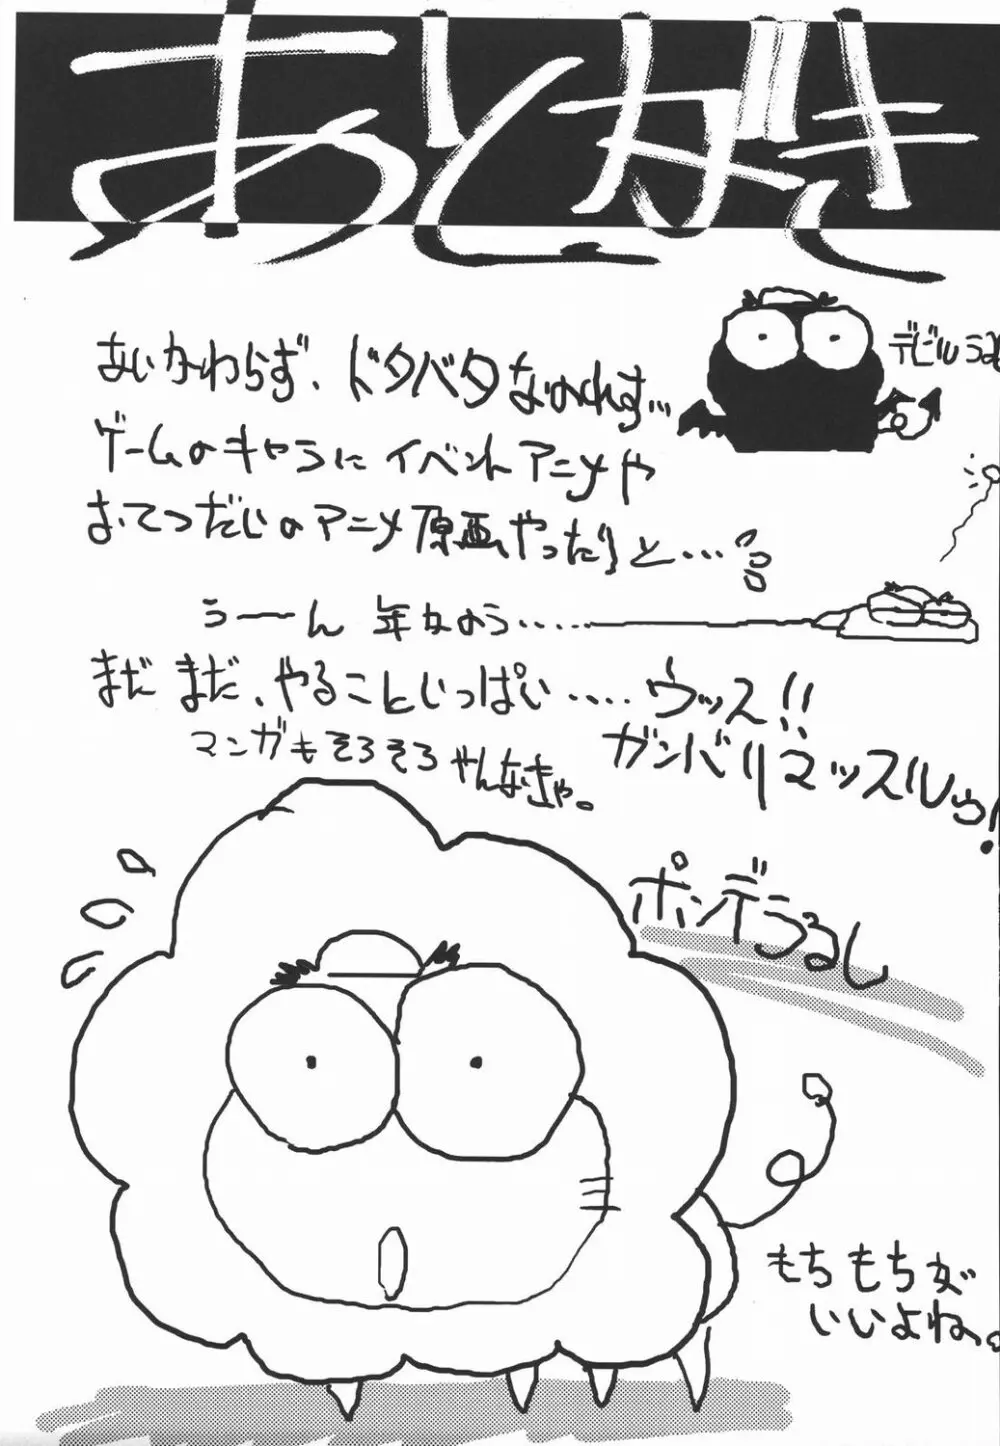 あとがき
あいかわらず、ドタバタなのれす…
デビルうる
ゲームのキャラにイベントアニメや
おてつだいのアニメ原画やったりと…
うーーん 年かのう……
まだまだ、やることいっぱい…‥ウッス!!
マンガもそろそろやんなきゃ。
ガンバリマッスルゥ!
ポンデうるし
もちもちが
いいよね。